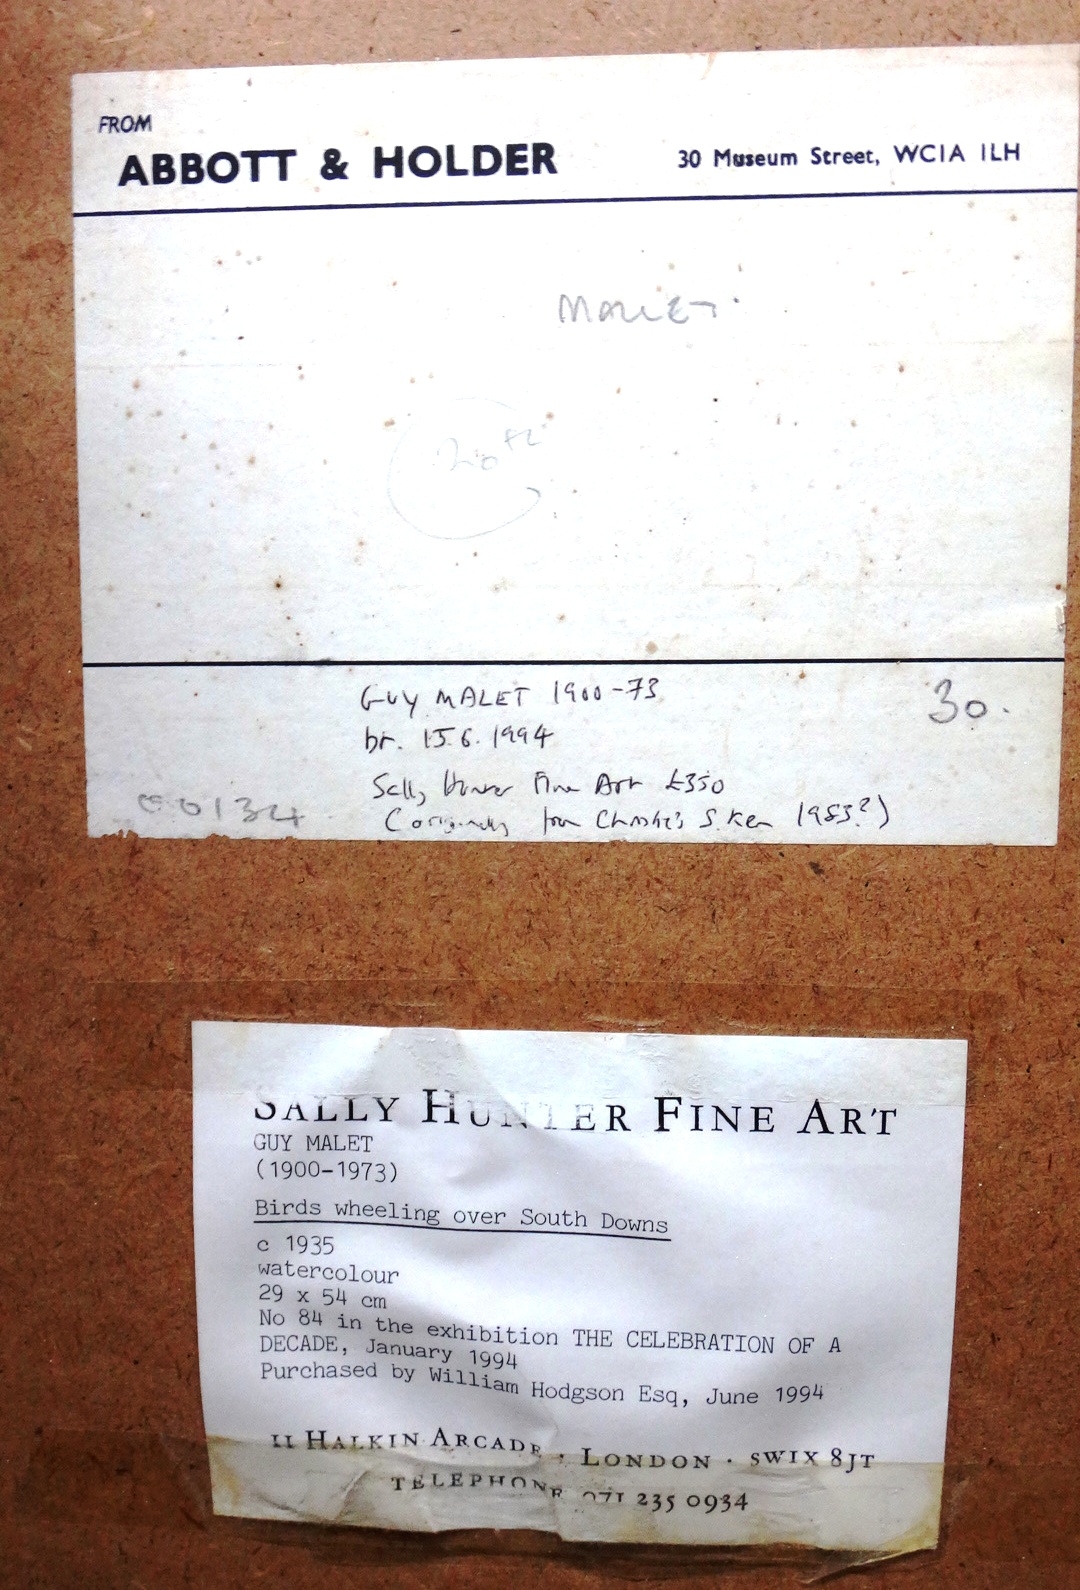 FROM
ABBOTT & HOLDER 30 Museum Street, WC1A 1LH
MALLET
GUY MALET 1900-73
30.
br. 15.6.1994
Sally Hunter Fine Art £350
(originally from Christie's S. Ken 1983?)
SALLY HUNTER FINE ART
GUY MALET
(1900-1973)
Birds wheeling over South Downs
c 1935
watercolour
29 x 54 cm
No 84 in the exhibition THE CELEBRATION OF A
DECADE, January 1994
Purchased by William Hodgson Esq, June 1994
11 HALKIN ARCADE · LONDON · SW1X 8JT
TELEPHONE 071 235 0934